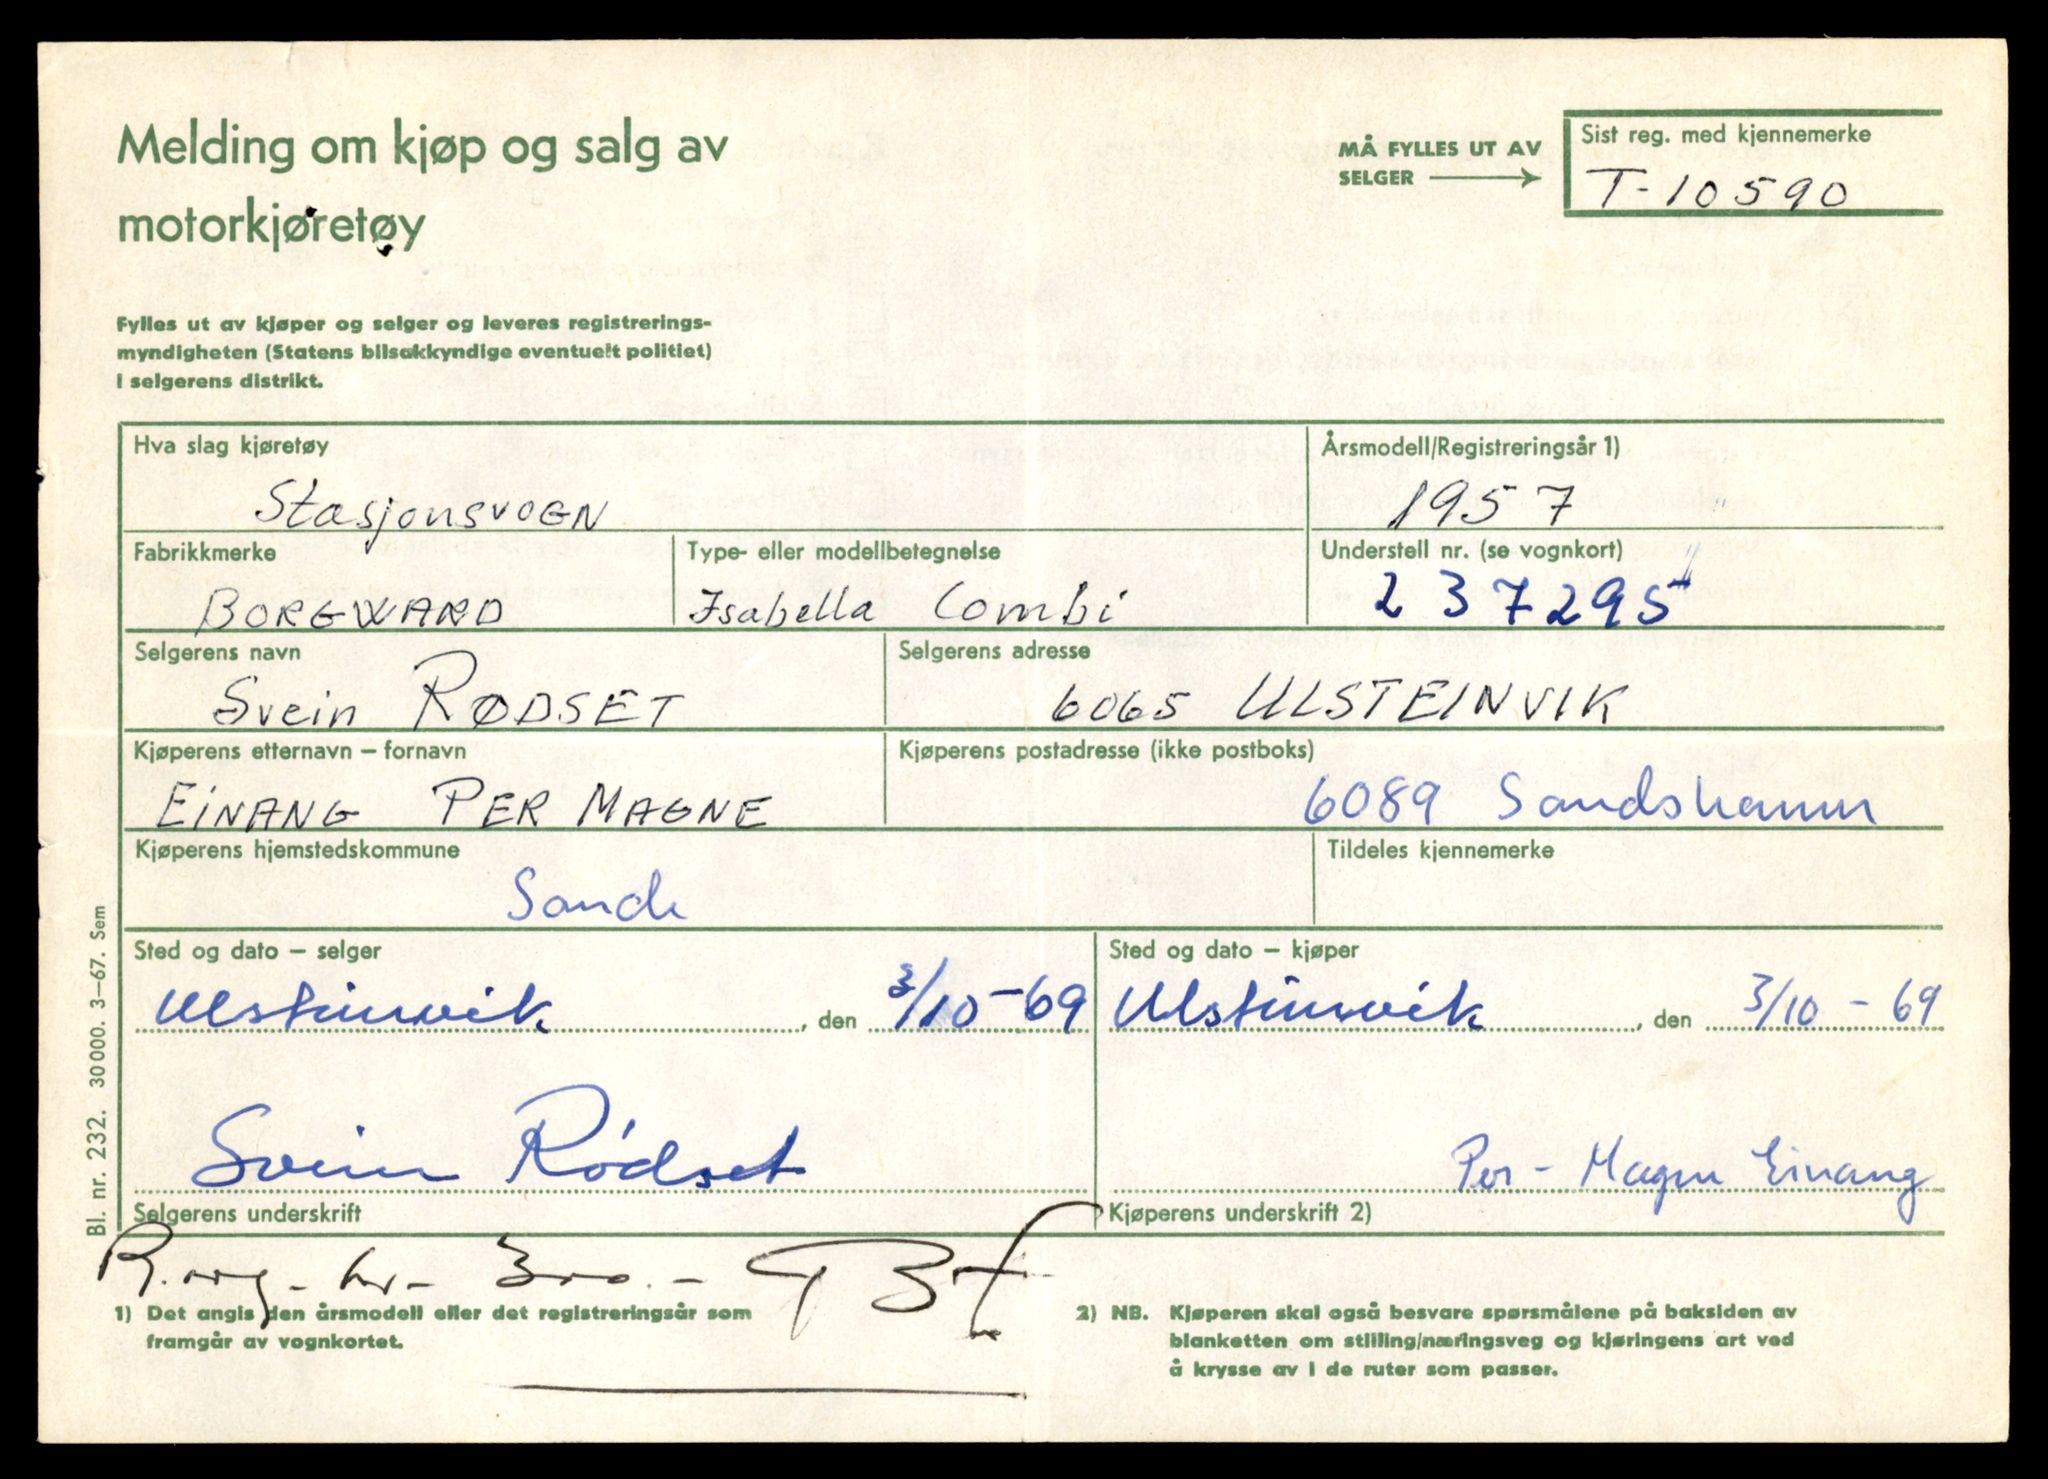 Melding om kjøp og salg av
motorkjøretøy
MÅ FYLLES UT AV
SELGER
Sist reg. med kjennemerke
T-10590
Fylles ut av kjøper og selger og leveres registrerings-
myndigheten (Statens bilsakkyndige eventuelt politiet)
i selgerens distrikt.
Hva slag kjøretøy
Stasjonsvogn
Årsmodell/Registreringsår 1)
1957
Fabrikkmerke
BORGWARD
Type- eller modellbetegnelse
Isabella Combi
Understell nr. (se vognkort)
237295
Selgerens navn
Svein RØDSET
Selgerens adresse
6065 ULSTEINVIK
Kjøperens etternavn – fornavn
EINANG PER MAGNE
Kjøperens postadresse (ikke postboks)
6089 Sandshamn
Kjøperens hjemstedskommune
Sande
Tildeles kjennemerke
Sted og dato – selger
Ulsteinvik, den 3/10-69
Sted og dato – kjøper
Ulsteinvik, den 3/10 - 69
Svein Rødset
Selgerens underskrift
Per - Magne Einang
Kjøperens underskrift 2)
1) Det angis den årsmodell eller det registreringsår som
framgår av vognkortet.
2) NB. Kjøperen skal også besvare spørsmålene på baksiden av
blanketten om stilling/næringsveg og kjøringens art ved
å krysse av i de ruter som passer.
Bl. nr. 232. 30000. 3–67. Sem